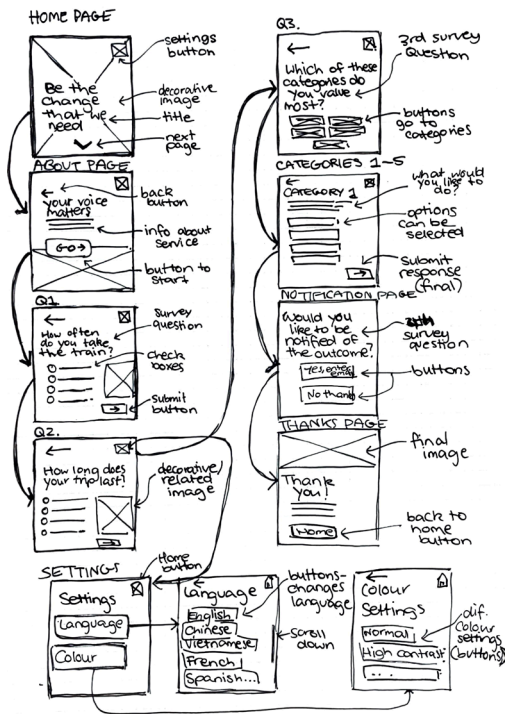 HOME PAGE
settings
button
Be the
change
that we
need
decorative
image
title
next
page
ABOUT PAGE
back
button
your voice
matters
info about
service
Go→
button to
start
Q1.
How often
do you take
the train?
survey
question
check
boxes
submit
button
Q2.
How long does
your trip last?
decorative/
related
image
Q3.
Which of these
categories do
you value
most?
3rd survey
Question
buttons
go to
categories
CATEGORIES 1-5
CATEGORY 1
what would
you like to
do?
options
can be
selected
Submit
response
(final)
NOTIFICATION PAGE
Would you
like to be
notified of
the outcome?
survey
question
Yes, enter
email
No thanks
buttons
THANKS PAGE
final
image
Thank
you!
Home
back to
home
button
SETTINGS
Home
button
Settings
Language
Colour
Language
English
Chinese
Vietnamese
French
Spanish...
buttons-
changes
language
scroll
down
Colour
Settings
Normal
High contrast
....
dif.
colour
settings
(buttons)